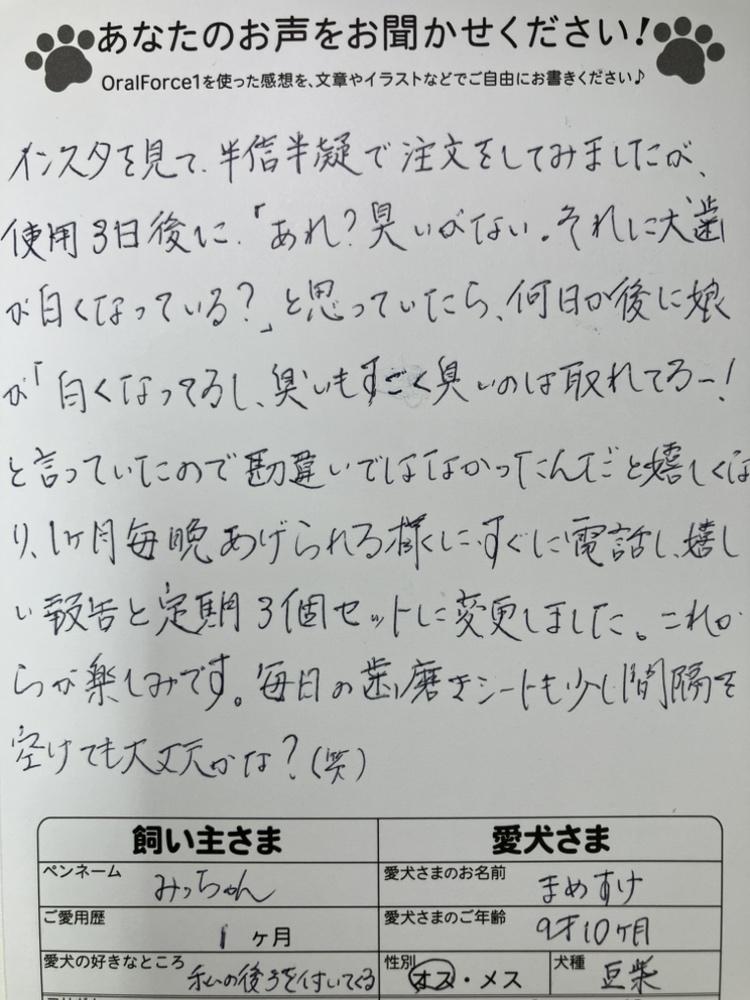 あなたのお声をお聞かせください!
OralForce1を使った感想を、文章やイラストなどでご自由にお書きください♪
インスタを見て、半信半疑で注文をしてみましたが、
使用3日後に、「あれ?臭いがない。それに犬歯
が白くなっている?」と思っていたら、何日か後に娘
が「白くなってるし、臭いもすごく臭いのは取れてるー!
と言っていたので勘違いではなかったんだと嬉しくな
り、1ヶ月毎晩あげられる様に、すぐに電話し、嬉し
い報告と定期3個セットに変更しました。これか
らが楽しみです。毎日の歯磨きシートも少し間隔を
空けても大丈夫かな?(笑)
飼い主さま 愛犬さま
ペンネーム みっちゃん 愛犬さまのお名前 まめすけ
ご愛用歴 1ヶ月 愛犬さまのご年齢 9才10ヶ月
愛犬の好きなところ 私の後ろを付いてくる 性別 オス・メス 犬種 豆柴